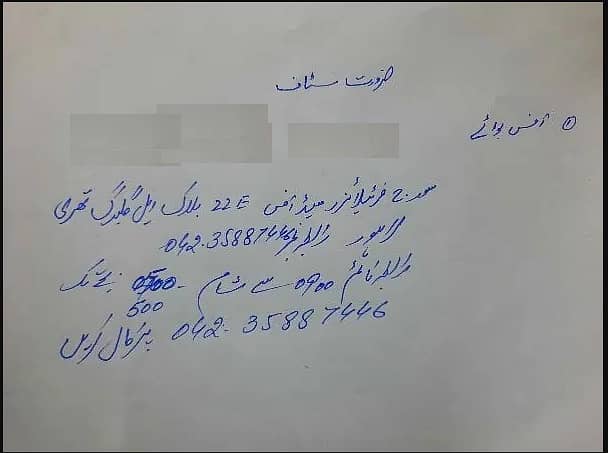 ضرورت سٹاف
① آفس بوائے
سورج فرٹیلائزر ہیڈ آفس 22E بلاک ایل گلبرگ تھری
لاہور رابطہ نمبر 042-35887446
رابطہ ٹائم 0900 سے شام 500 بجے تک
042-35887446 پر کال کریں